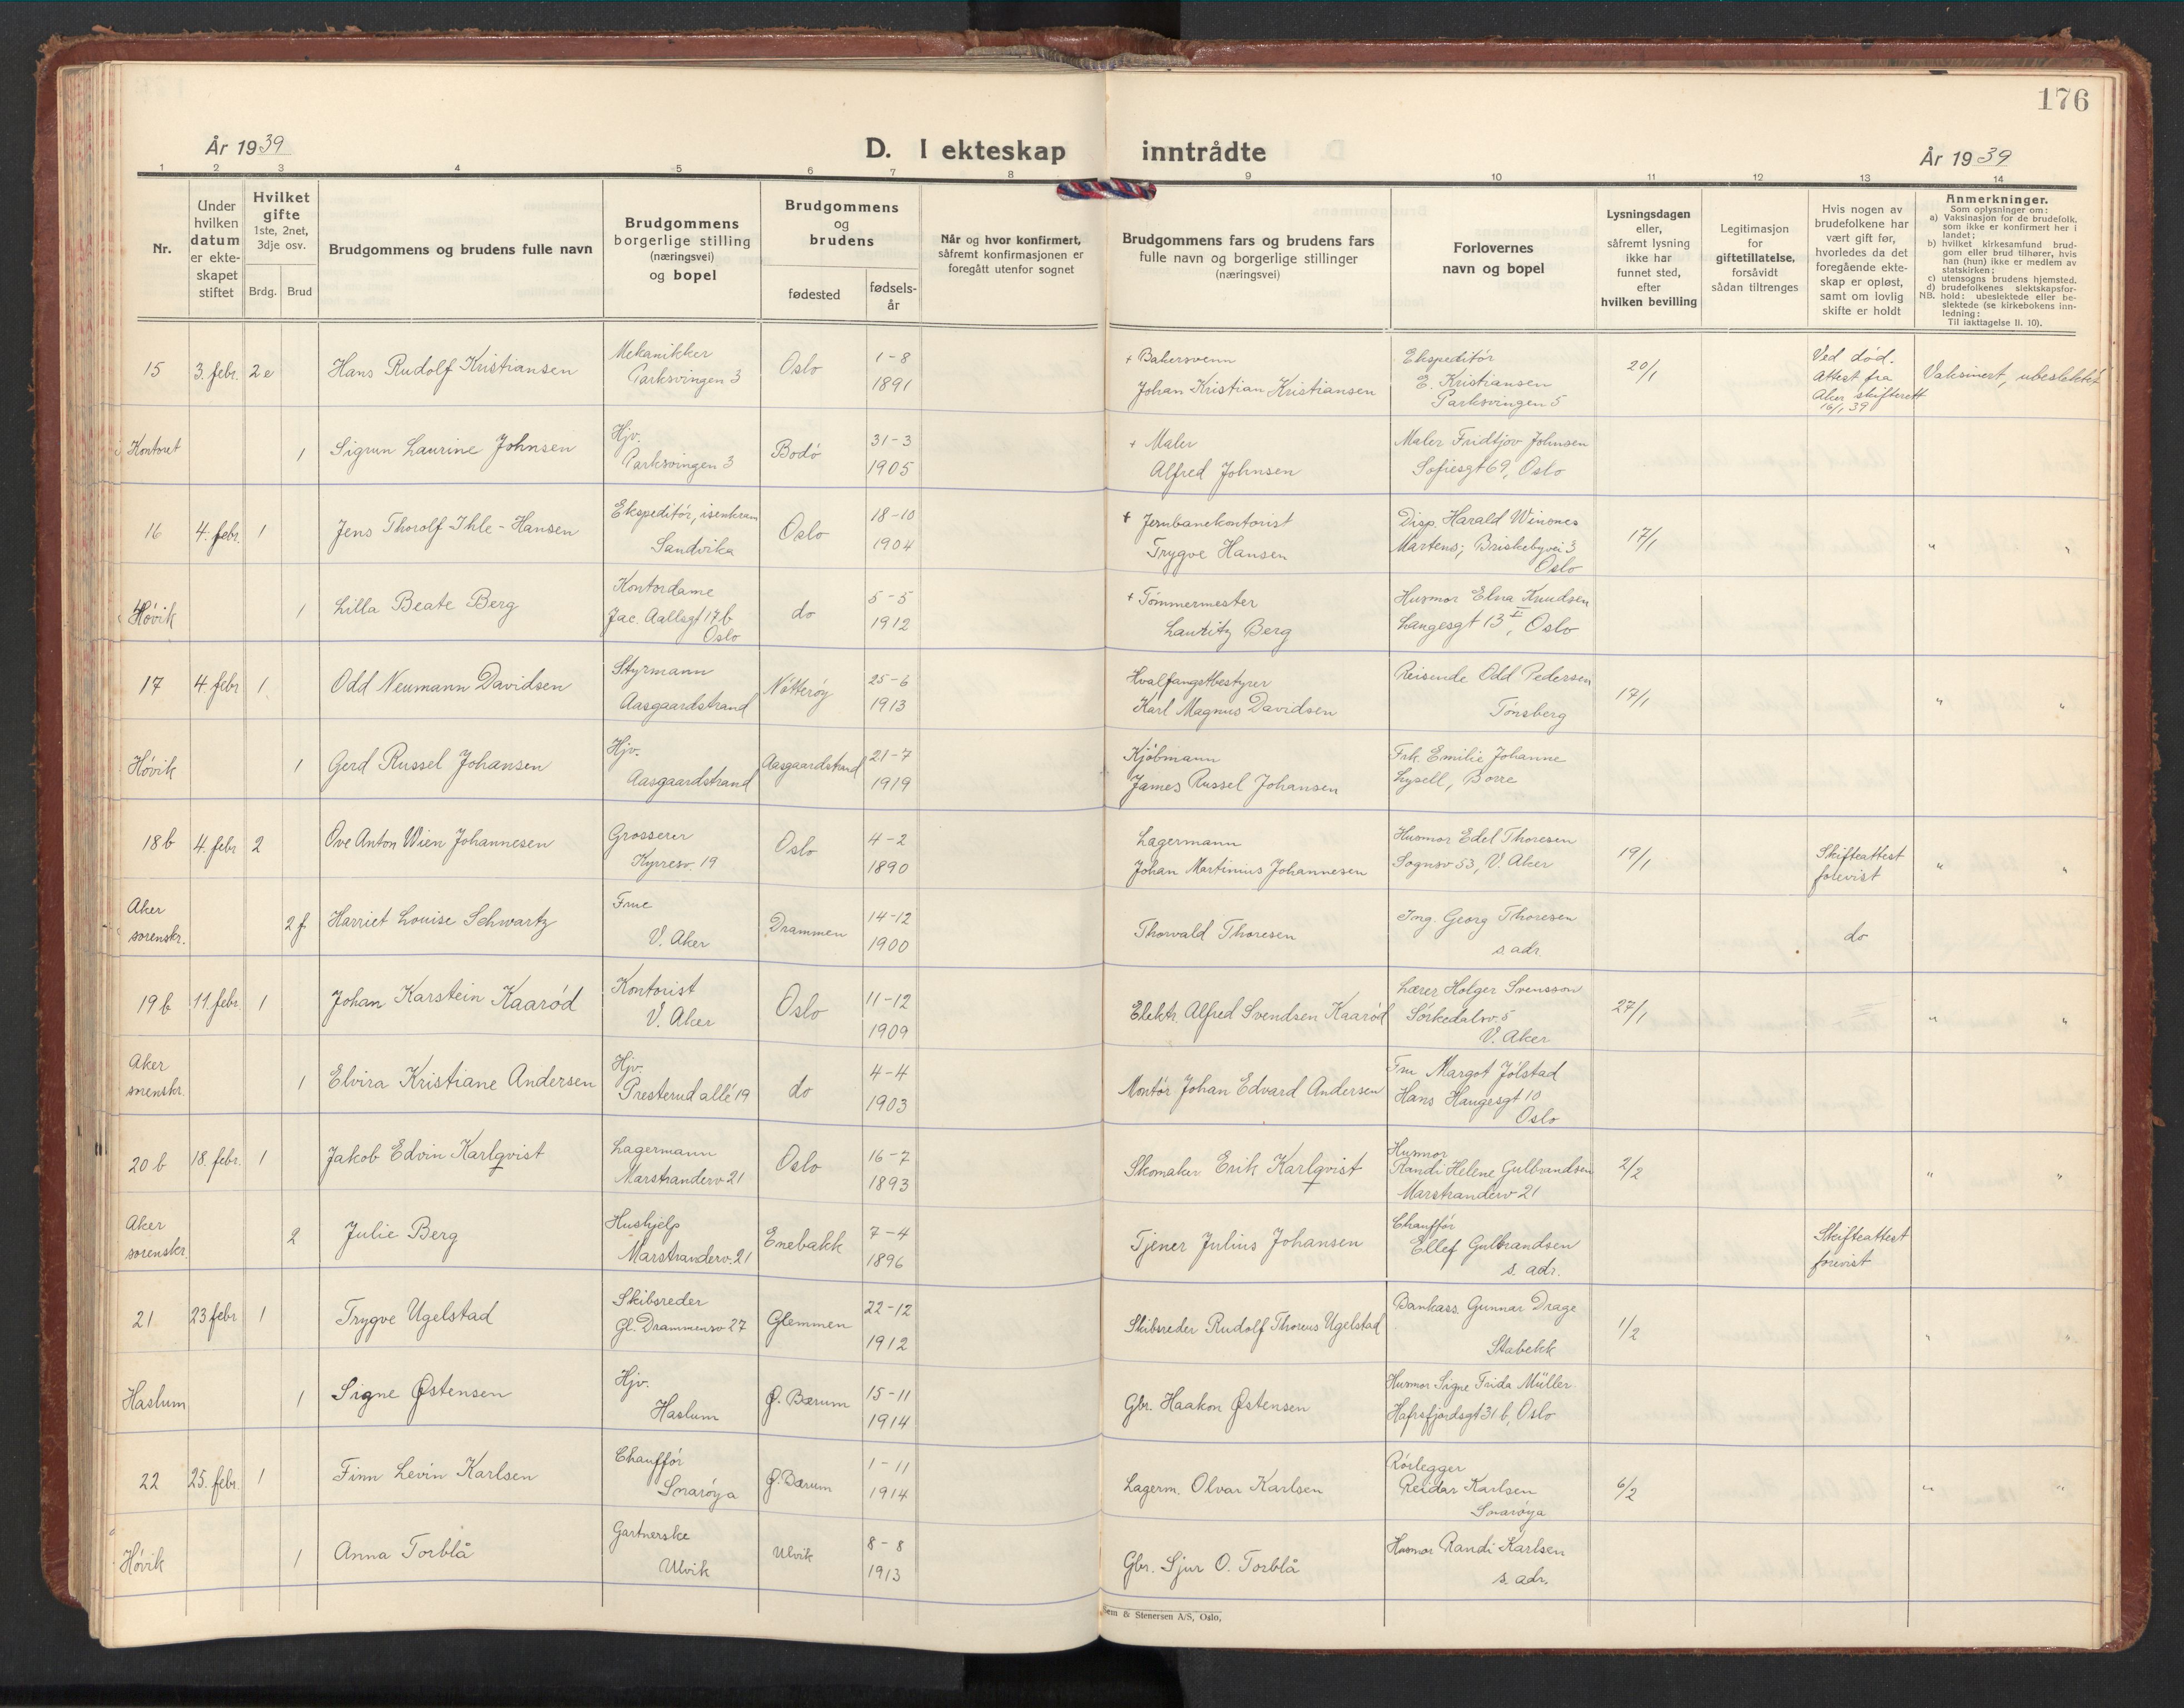 176
År 1939
D. I ekteskap inntrådte
År 1939
1 2 3 4 5 6 7 8 9 10 11 12 13 14
Nr.
Under hvilken datum er ekte-skapet stiftet
Hvilket gifte 1ste, 2net, 3dje osv.
Brdg. Brud
Brudgommens og brudens fulle navn
Brudgommens borgerlige stilling (næringsvei) og bopel
Brudgommens og brudens
fødested
fødsels-år
Når og hvor konfirmert, såfremt konfirmasjonen er foregått utenfor sognet
Brudgommens fars og brudens fars fulle navn og borgerlige stillinger (næringsvei)
Forlovernes navn og bopel
Lysningsdagen eller, såfremt lysning ikke har funnet sted, efter hvilken bevilling
Legitimasjon for giftetillatelse, forsåvidt sådan tiltrenges
Hvis nogen av brudefolkene har vært gift før, hvorledes da det foregående ekte-skap er opløst, samt om lovlig skifte er holdt
Anmerkninger.
Som oplysninger om:
a) Vaksinasjon for de brudefolk, som ikke er konfirmert her i landet;
b) hvilket kirkesamfund brud-gom eller brud tilhører, hvis han (hun) ikke er medlem av statskirken;
c) utensogns brudens hjemsted.
d) brudefolkenes slektskapsfor-hold: ubeslektede eller be-slektede (se kirkebokens inn-ledning:
NB. Til iakttagelse II. 10).
15 3. febr. 2e Hans Rudolf Kristiansen Mekanikker Parksvingen 3 Oslo 1-8 1891 + Bakersvenn Johan Kristian Kristiansen Ekspeditør E. Kristiansen Parksvingen 5 20/1 Ved død. Attest fra Aker skifterett 16/1 39 Vaksinert, ubeslektet
Kontoret 1 Sigrun Laurine Johnsen Hjv. Parksvingen 3 Bodø 31-3 1905 + Maler Alfred Johnsen Maler Fridtjov Johnsen Sofiesgt 69, Oslo
16 4. febr. 1 Jens Thorolf Ihle-Hansen Ekspeditør, isenkram Sandvika Oslo 18-10 1904 + Jernbanekontorist Trygve Hansen Disp. Harald Winones Martens, Briskebyvei 3 Oslo 17/1 " "
Høvik 1 Lilla Beate Berg Kontordame Jac. Aallsgt 17b Oslo do 5-5 1912 + Tømmermester Lauritz Berg Husmor Elna Knudsen Langesgt 13 II, Oslo
17 4. febr 1. Odd Neumann Davidsen Styrmann Aasgaardstrand Nøtterøy 25-6 1913 Hvalfangstbestyrer Karl Magnus Davidsen Reisende Odd Pedersen Tønsberg 17/1 " "
Høvik 1 Gerd Russel Johansen Hjv. Aasgaardstrand Aasgaardstrand 21-7 1919 Kjøbmann James Russel Johansen Frk. Emilie Johanne Lysell, Borre
18b 4. febr 2 Ove Anton Wien Johannesen Grosserer Kypresv. 19 Oslo 4-2 1890 Lagermann Johan Martinius Johannesen Husmor Edel Thoresen Sognsv 53, V. Aker 19/1 Skifteattest forevist " "
Aker sorenskr. 2 f Harriet Louise Schwartz Frue V. Aker Drammen 14-12 1900 Thorvald Thoresen Ing. Georg Thoresen s. adr. do
19b 11. febr. 1 Johan Karstein Kaarød Kontorist V. Aker Oslo 11-12 1909 Elektr. Alfred Svendsen Kaarød Lærer Holger Svensson Sørkedalsv. 5 V. Aker 27/1 " "
Aker sorenskr. 1 Elvira Kristiane Andersen Hjv. Presterud allé 19 do 4-4 1903 Montør Johan Edvard Andersen Fru Margot Jølstad Hans Haugesgt 10 Oslo
20b 18. febr. 1 Jakob Edvin Karlqvist Lagermann Marstranderv 21 Oslo 16-7 1893 Skomaker Erik Karlqvist Husmor Randi Helene Gulbrandsen Marstranderv 21 2/2 " "
Aker sorenskr. 2 Julie Berg Hushjelp Marstranderv. 21 Enebakk 7-4 1896 Tjener Julius Johansen Chauffør Ellef Gulbrandsen s. adr. Skifteattest forevist
21 23 febr 1 Trygve Ugelstad Skibsreder Gl. Drammensv 27 Glemmen 22-12 1912 Skibsreder Rudolf Thoreus Ugelstad Bankass. Gunnar Drage Stabekk 1/2 " "
Haslum 1 Signe Østensen Hjv. Haslum Ø. Bærum 15-11 1914 Gbr. Haakon Østensen Husmor Signe Frida Müller Hafrsfjordsgt 31 b, Oslo
22 25. febr. 1 Finn Levin Karlsen Chauffør Snarøya Ø. Bærum 1-11 1914 Lagerm. Olvar Karlsen Rørlegger Reidar Karlsen Snarøya 6/2 " "
Høvik 1 Anna Torblå Gartnerske Ulvik Ulvik 8-8 1913 Gbr. Sjur O. Torblå Husmor Randi Karlsen s. adr.
Sem & Stenersen A/S, Oslo.